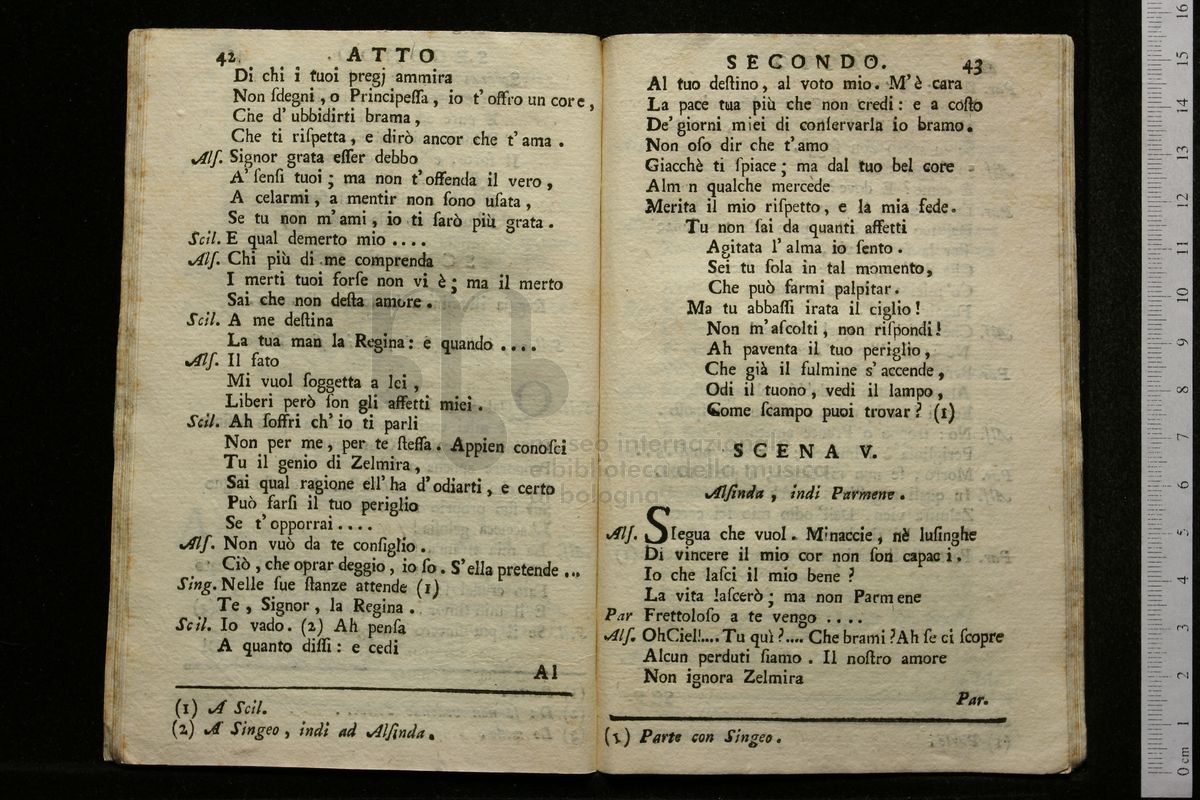 42 ATTO
Di chi i tuoi pregj ammira
Non ſdegni, o Principeſſa, io t' offro un core,
Che d' ubbidirti brama,
Che ti riſpetta, e dirò ancor che t' ama.
Alſ. Signor grata eſſer debbo
A' ſenſi tuoi; ma non t' offenda il vero,
A celarmi, a mentir non ſono uſata,
Se tu non m' ami, io ti farò più grata.
Scil. E qual demerto mio ....
Alſ. Chi più di me comprenda
I merti tuoi forſe non vi è; ma il merto
Sai che non deſta amore.
Scil. A me deſtina
La tua man la Regina: e quando ....
Alſ. Il fato
Mi vuol ſoggetta a lei,
Liberi però ſon gli affetti miei.
Scil. Ah ſoffri ch' io ti parli
Non per me, per te ſteſſa. Appien conoſci
Tu il genio di Zelmira,
Sai qual ragione ell' ha d' odiarti, e certo
Può farſi il tuo periglio
Se t' opporrai ....
Alſ. Non vuò da te conſiglio.
Ciò, che oprar deggio, io ſo. S' ella pretende ...
Sing. Nelle ſue ſtanze attende (1)
Te, Signor, la Regina.
Scil. Io vado. (2) Ah penſa
A quanto diſſi: e cedi
Al
(1) A Scil.
(2) A Singeo, indi ad Alſinda.
SECONDO. 43
Al tuo deſtino, al voto mio. M' è cara
La pace tua più che non credi: e a coſto
De' giorni miei di conſervarla io bramo.
Non oſo dir che t' amo
Giacchè ti ſpiace; ma dal tuo bel core
Alm n qualche mercède
Merita il mio riſpetto, e la mia fede.
Tu non ſai da quanti affetti
Agitata l' alma io ſento.
Sei tu ſola in tal momento,
Che può farmi palpitar.
Ma tu abbaſſi irata il ciglio!
Non m' aſcolti, non riſpondi!
Ah paventa il tuo periglio,
Che già il fulmine s' accende,
Odi il tuono, vedi il lampo,
Come ſcampo puoi trovar? (1)
SCENA V.
Alſinda, indi Parmene.
Alſ. SIegua che vuol. Minaccie, nè luſinghe
Di vincere il mio cor non ſon capac i.
Io che laſci il mio bene?
La vita laſcerò; ma non Parmene
Par Frettoloſo a te vengo ....
Alſ. Oh Ciel!.... Tu quì?.... Che brami? Ah ſe ci ſcopre
Alcun perduti ſiamo. Il noſtro amore
Non ignora Zelmira
Par.
(1) Parte con Singeo.
museo internazionale
e biblioteca della musica
bologna
0 cm 1 2 3 4 5 6 7 8 9 10 11 12 13 14 15 16